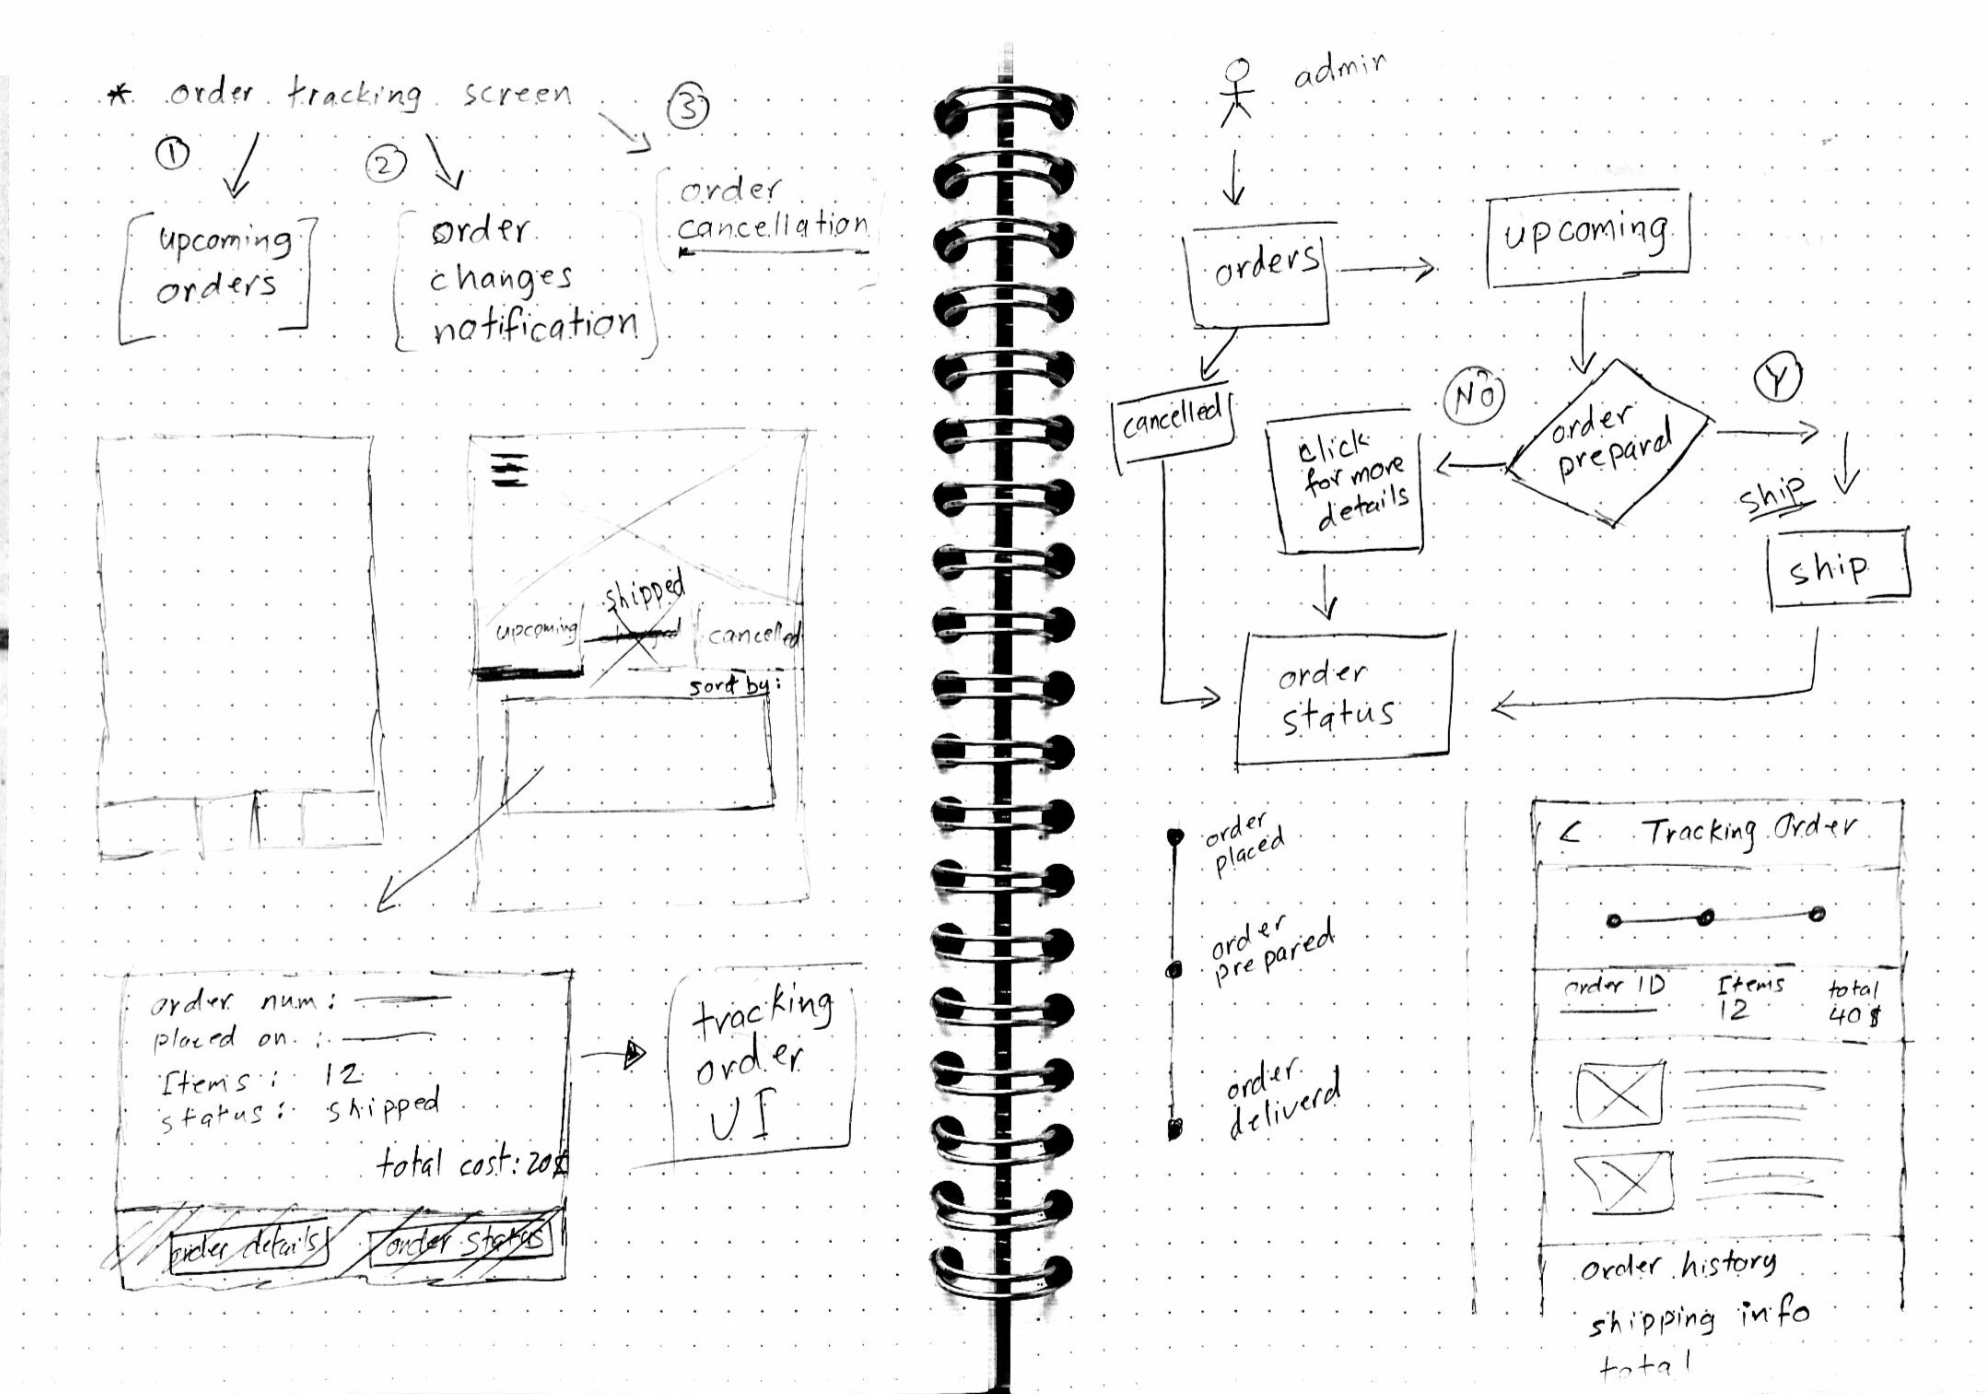 * order tracking screen
1
2
3
upcoming
orders
order
changes
notification
order
cancellation
shipped
upcoming
cancelled
sort by:
order num:
placed on :
Items: 12
status: shipped
total cost: 20$
order details
order status
tracking
order
UI
admin
orders
upcoming
cancelled
click
for more
details
NO
order
prepard
Y
ship
ship
order
status
order
placed
order
prepared
order
deliverd
< Tracking Order
order ID
Items
12
total
40$
order history
shipping info
total